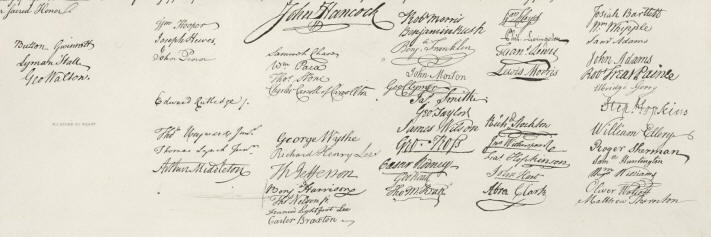 our sacred Honor
Button Gwinnett
Lyman Hall
Geo Walton.
Wm Hooper
Joseph Hewes,
John Penn
Edward Rutledge /.
Thos Heyward Junr.
Thomas Lynch Junr.
Arthur Middleton
John Hancock
Samuel Chase
Wm Paca
Thos Stone
Charles Carroll of Carrollton
George Wythe
Richard Henry Lee
Th Jefferson
Benj Harrison
Thos Nelson jr.
Francis Lightfoot Lee
Carter Braxton
Robt Morris
Benjamin Rush
Benj. Franklin
John Morton
Geo Clymer
Jas. Smith
Geo. Taylor
James Wilson
Geo. Ross
Caesar Rodney
Geo Read
Tho M:Kean
Phil. Livingston
Frans. Lewis
Lewis Morris
Richd. Stockton
Jno Witherspoon
Fras. Hopkinson
John Hart
Abra Clark
Josiah Bartlett
Wm. Whipple
Saml Adams
John Adams
Robt Treat Paine
Elbridge Gerry
Step. Hopkins
William Ellery
Roger Sherman
Saml Huntington
Wm Williams
Oliver Wolcott
Matthew Thornton